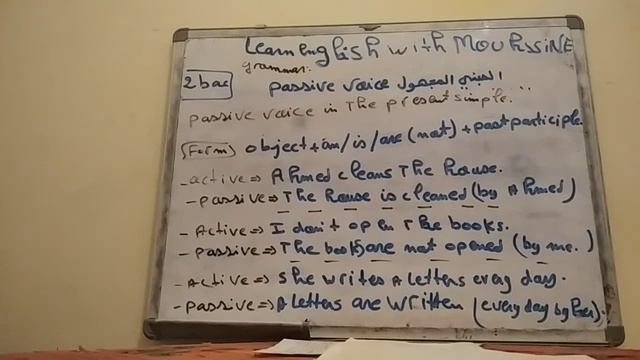 Learn English with Mouhssine
grammar:
2bac
passive voice المبني للمجهول
passive voice in the present simple.
Form object + am/is/are (not) + past participle.
- active => Ahmed cleans the house.
- passive => The house is cleaned (by Ahmed)
- Active => I don't open the books.
- passive => The books are not opened (by me.)
- Active => She writes A letters every day.
- passive => A letters are written (every day by her).